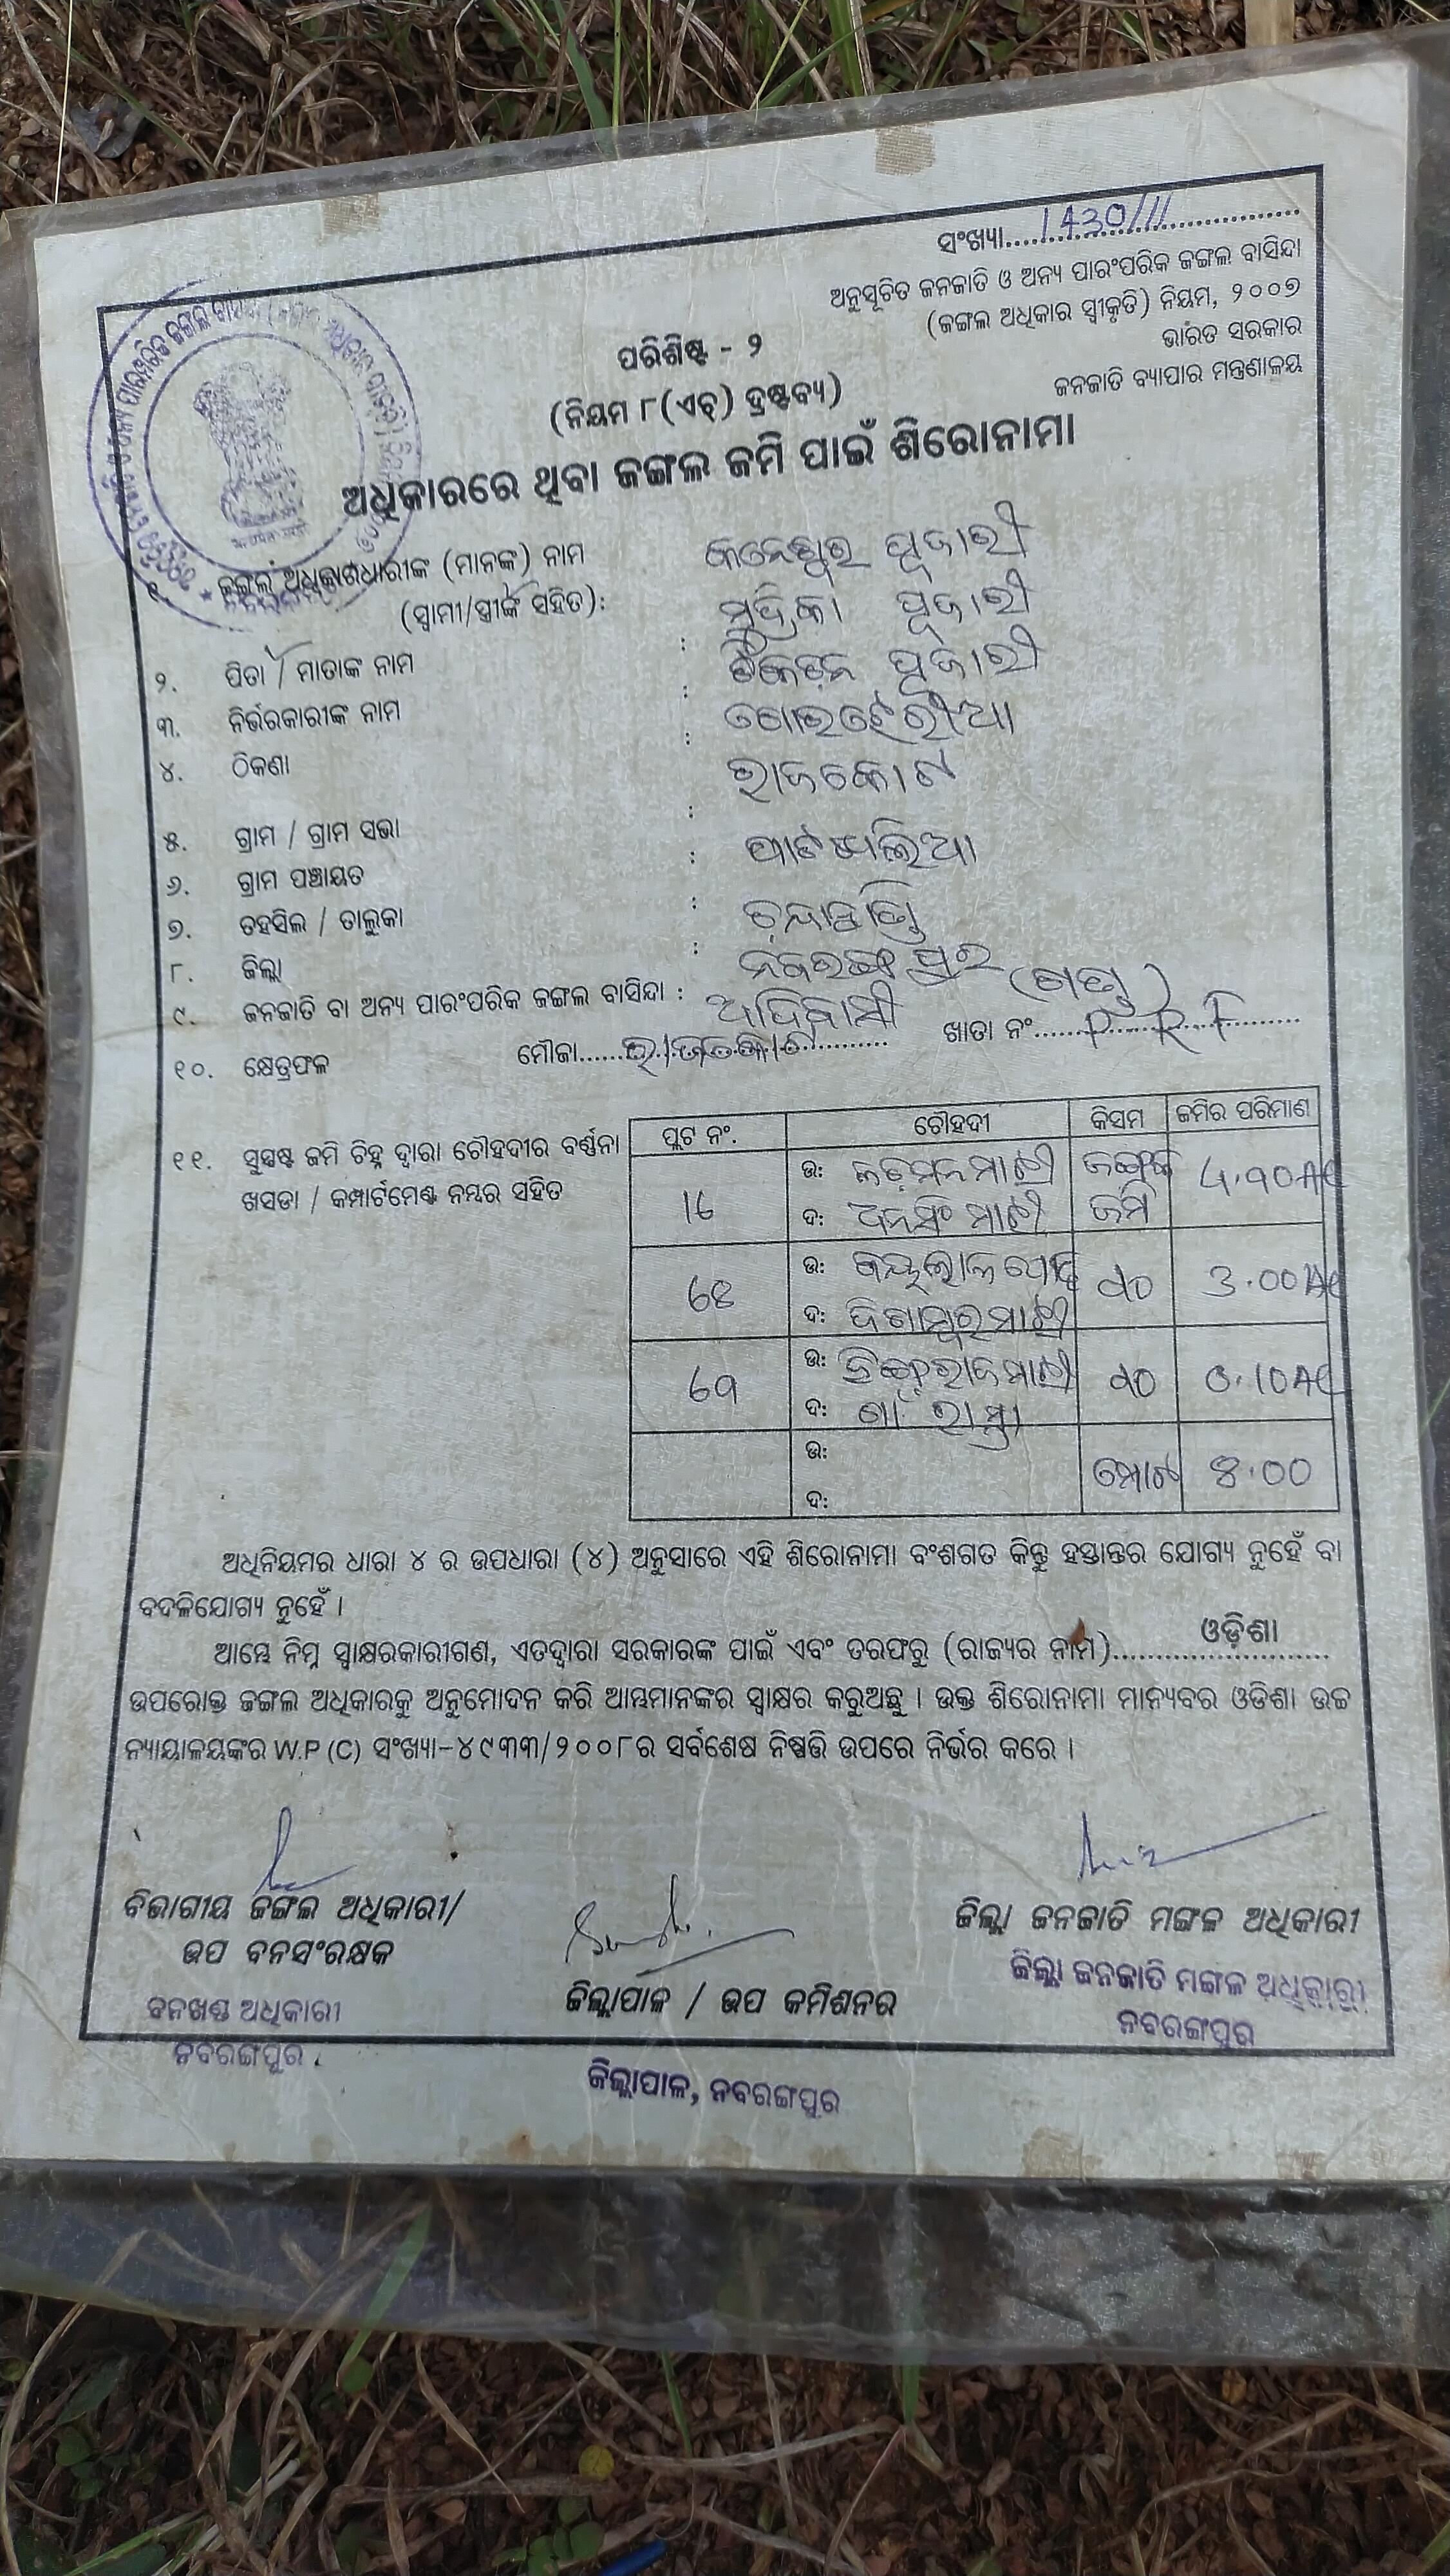 ସଂଖ୍ୟା.....1430/11
ଅନୁସୂଚିତ ଜନଜାତି ଓ ଅନ୍ୟ ପାରଂପରିକ ଜଙ୍ଗଲ ବାସିନ୍ଦା
(ଜଙ୍ଗଲ ଅଧିକାର ସ୍ୱୀକୃତି) ନିୟମ, ୨୦୦୭
ଭାରତ ସରକାର
ଜନଜାତି ବ୍ୟାପାର ମନ୍ତ୍ରଣାଳୟ
ପରିଶିଷ୍ଟ - ୨
(ନିୟମ ୮(ଏଚ୍) ଦ୍ରଷ୍ଟବ୍ୟ)
ଅଧିକାରରେ ଥିବା ଜଙ୍ଗଲ ଜମି ପାଇଁ ଶିରୋନାମା
୧. ଜଙ୍ଗଲ ଅଧିକାରଧାରୀଙ୍କ (ମାନଙ୍କ) ନାମ ପୂଜାରୀ
(ସ୍ୱାମୀ/ସ୍ତ୍ରୀଙ୍କ ସହିତ): ମୁଦ୍ରିକା ପୂଜାରୀ
୨. ପିତା / ମାତାଙ୍କ ନାମ : ପୂଜାରୀ
୩. ନିର୍ଭରକାରୀଙ୍କ ନାମ :
୪. ଠିକଣା : ରାଜକୋଟ
୫. ଗ୍ରାମ / ଗ୍ରାମ ସଭା :
୬. ଗ୍ରାମ ପଞ୍ଚାୟତ :
୭. ତହସିଲ / ତାଲୁକା : ଚନ୍ଦାହାଣ୍ଡି
୮. ଜିଲ୍ଲା : ନବରଙ୍ଗପୁର
୯. ଜନଜାତି ବା ଅନ୍ୟ ପାରଂପରିକ ଜଙ୍ଗଲ ବାସିନ୍ଦା : ଆଦିବାସୀ (ଗଣ୍ଡ)
୧୦. କ୍ଷେତ୍ରଫଳ ମୌଜା.....ରାଜକୋଟ..... ଖାତା ନଂ.....P.R.F.....
୧୧. ସୁସ୍ପଷ୍ଟ ଜମି ଚିହ୍ନ ଦ୍ୱାରା ଚୌହଦୀର ବର୍ଣ୍ଣନା
ଖସଡା / କମ୍ପାର୍ଟମେଣ୍ଟ ନମ୍ବର ସହିତ
ପ୍ଲଟ ନଂ. ଚୌହଦୀ କିସମ ଜମିର ପରିମାଣ
16 ଉ: ମାଝୀ ଜଙ୍ଗଲ
ଦ: ଧନସିଂ ମାଝୀ ଜମି
ଉ:
ଦ: ଦିଗାମ୍ବର ମାଝୀ
ଉ: ମାଝୀ
ଦ: ଗାଁ ରାସ୍ତା
ଉ: ମୋଟ
ଦ:
ଅଧିନିୟମର ଧାରା ୪ ର ଉପଧାରା (୪) ଅନୁସାରେ ଏହି ଶିରୋନାମା ବଂଶଗତ କିନ୍ତୁ ହସ୍ତାନ୍ତର ଯୋଗ୍ୟ ନୁହେଁ ବା
ବଦଳିଯୋଗ୍ୟ ନୁହେଁ ।
ଆମ୍ଭେ ନିମ୍ନ ସ୍ୱାକ୍ଷରକାରୀଗଣ, ଏତଦ୍ୱାରା ସରକାରଙ୍କ ପାଇଁ ଏବଂ ତରଫରୁ (ରାଜ୍ୟର ନାମ).....ଓଡ଼ିଶା.....
ଉପରୋକ୍ତ ଜଙ୍ଗଲ ଅଧିକାରକୁ ଅନୁମୋଦନ କରି ଆମ୍ଭମାନଙ୍କର ସ୍ୱାକ୍ଷର କରୁଅଛୁ । ଉକ୍ତ ଶିରୋନାମା ମାନ୍ୟବର ଓଡିଶା ଉଚ୍ଚ
ନ୍ୟାୟାଳୟଙ୍କର W.P (C) ସଂଖ୍ୟା-୪୯୩୩/୨୦୦୮ର ସର୍ବଶେଷ ନିଷ୍ପତ୍ତି ଉପରେ ନିର୍ଭର କରେ ।
ବିଭାଗୀୟ ଜଙ୍ଗଲ ଅଧିକାରୀ/
ଉପ ବନସଂରକ୍ଷକ
ବନଖଣ୍ଡ ଅଧିକାରୀ
ନବରଙ୍ଗପୁର
ଜିଲ୍ଲାପାଳ / ଉପ କମିଶନର
ଜିଲ୍ଲାପାଳ, ନବରଙ୍ଗପୁର
ଜିଲ୍ଲା ଜନଜାତି ମଙ୍ଗଳ ଅଧିକାରୀ
ଜିଲ୍ଲା ଜନଜାତି ମଙ୍ଗଳ ଅଧିକାରୀ
ନବରଙ୍ଗପୁର